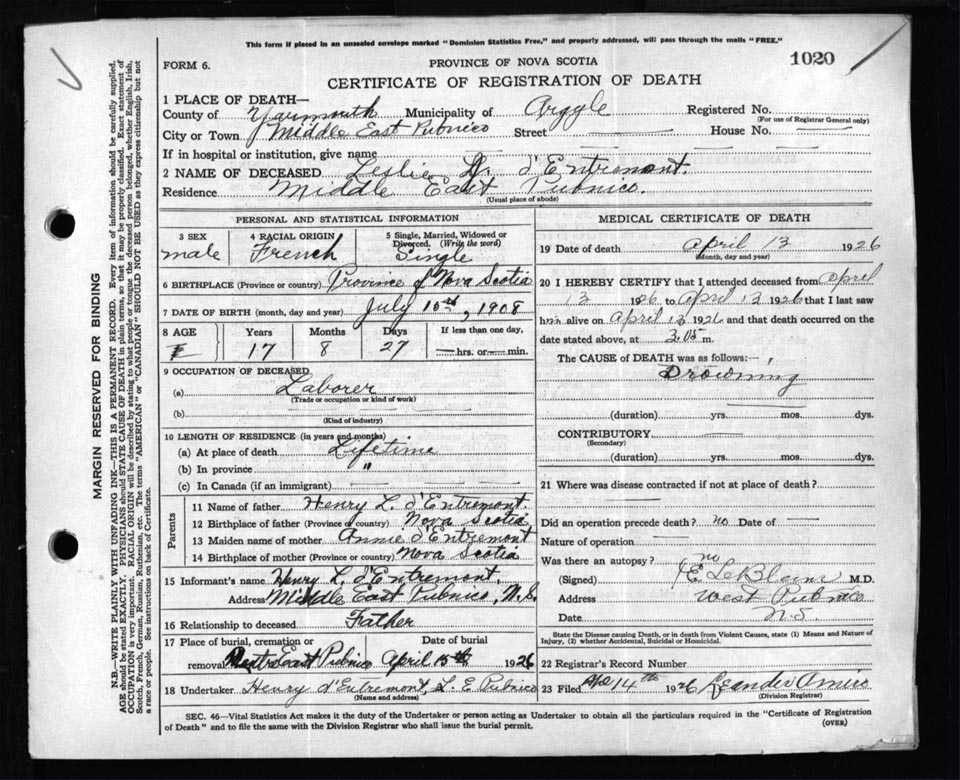 This form if placed in an unsealed envelope marked "Dominion Statistics Free," and properly addressed, will pass through the mails "FREE."
FORM 6.
PROVINCE OF NOVA SCOTIA
1020
CERTIFICATE OF REGISTRATION OF DEATH
1 PLACE OF DEATH—
County of Yarmouth Municipality of Argyle Registered No.
(For use of Registrar General only)
City or Town Middle East Pubnico Street — House No. —
If in hospital or institution, give name
2 NAME OF DECEASED Leslie d'Entremont.
Residence Middle East Pubnico.
(Usual place of abode)
PERSONAL AND STATISTICAL INFORMATION
3 SEX male
4 RACIAL ORIGIN French
5 Single, Married, Widowed or Divorced. (Write the word) Single
6 BIRTHPLACE (Province or country) Province of Nova Scotia
7 DATE OF BIRTH (month, day and year) July 10th, 1908
8 AGE Years Months Days If less than one day,
17 8 27 — hrs. or — min.
9 OCCUPATION OF DECEASED
(a) Laborer
(Trade or occupation or kind of work)
(b)
(Kind of industry)
10 LENGTH OF RESIDENCE (in years and months)
(a) At place of death Lifetime
(b) In province "
(c) In Canada (if an immigrant)
Parents
11 Name of father Henry L. d'Entremont.
12 Birthplace of father (Province or country) Nova Scotia
13 Maiden name of mother Annie d'Entremont
14 Birthplace of mother (Province or country) Nova Scotia
15 Informant's name Henry L. d'Entremont.
Address Middle East Pubnico, N.S.
16 Relationship to deceased Father
17 Place of burial, cremation or Date of burial
removal East Pubnico April 15th 1926
18 Undertaker Henry d'Entremont, L. E. Pubnico
(Name and address)
MEDICAL CERTIFICATE OF DEATH
19 Date of death April 13 1926
(Month, day and year)
20 I HEREBY CERTIFY that I attended deceased from April
13 1926 to April 13 1926 that I last saw
h alive on April 13 1926 and that death occurred on the
date stated above, at 3.05 m.
The CAUSE of DEATH was as follows:—
Drowning
(duration) yrs. mos. dys.
CONTRIBUTORY —
(Secondary)
(duration) yrs. mos. dys.
21 Where was disease contracted if not at place of death?
Did an operation precede death? no Date of —
Nature of operation —
Was there an autopsy? no
(Signed) LeBlanc M.D.
Address West Pubnico
Date N.S
State the Disease causing Death, or in death from Violent Causes, state (1) Means and Nature of Injury, (2) whether Accidental, Suicidal or Homicidal.
22 Registrar's Record Number
23 Filed 14th 1926 Leander Amiro
(Division Registrar)
SEC. 46—Vital Statistics Act makes it the duty of the Undertaker or person acting as Undertaker to obtain all the particulars required in the "Certificate of Registration
of Death" and to file the same with the Division Registrar who shall issue the burial permit.
(OVER)
MARGIN RESERVED FOR BINDING
N.B.—WRITE PLAINLY WITH UNFADING INK—THIS IS A PERMANENT RECORD. Every item of information should be carefully supplied.
AGE should be stated EXACTLY. PHYSICIANS should STATE CAUSE OF DEATH in plain terms, so that it may be properly classified. Exact statement of
OCCUPATION is very important. RACIAL ORIGIN will be described by stating to what people or tongue the deceased person belonged, whether English, Irish,
Scotch, French, German, Russian, Ruthenian, etc. The terms "AMERICAN" or "CANADIAN" SHOULD NOT BE USED as they express citizenship but not
a race or people. See instructions on back of Certificate.